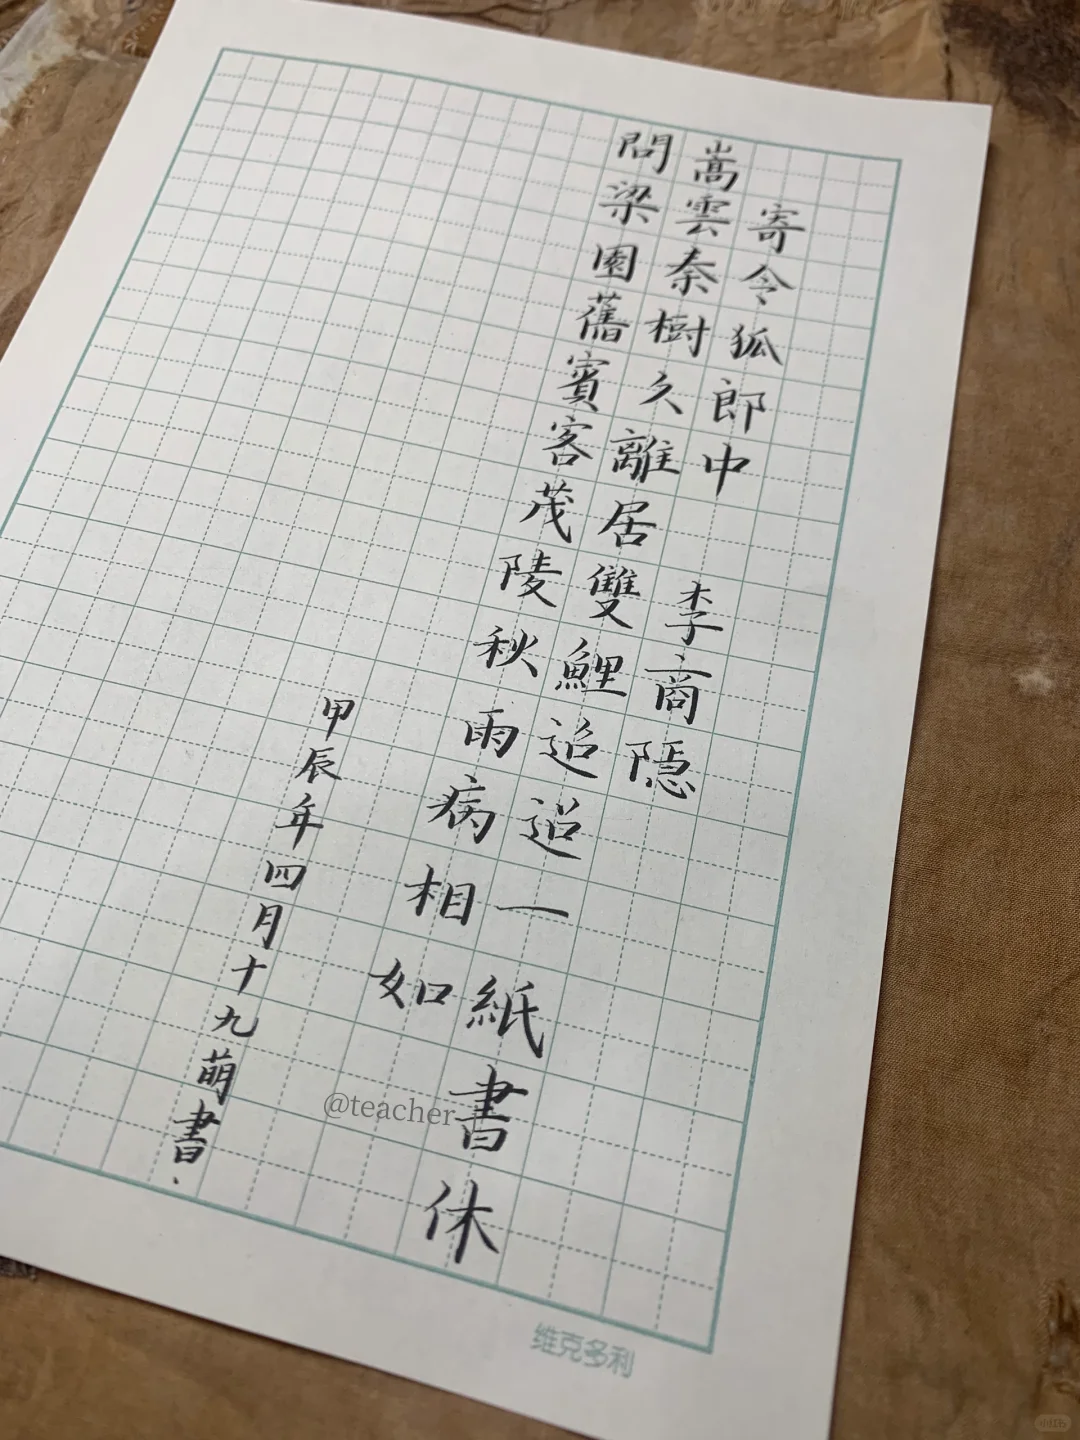 寄令狐郎中 李商隐
嵩雲秦樹久離居雙鯉迢迢一紙書休
問梁園舊賓客茂陵秋雨病相如
甲辰年四月十九萌書
@teacher
维克多利
小红书